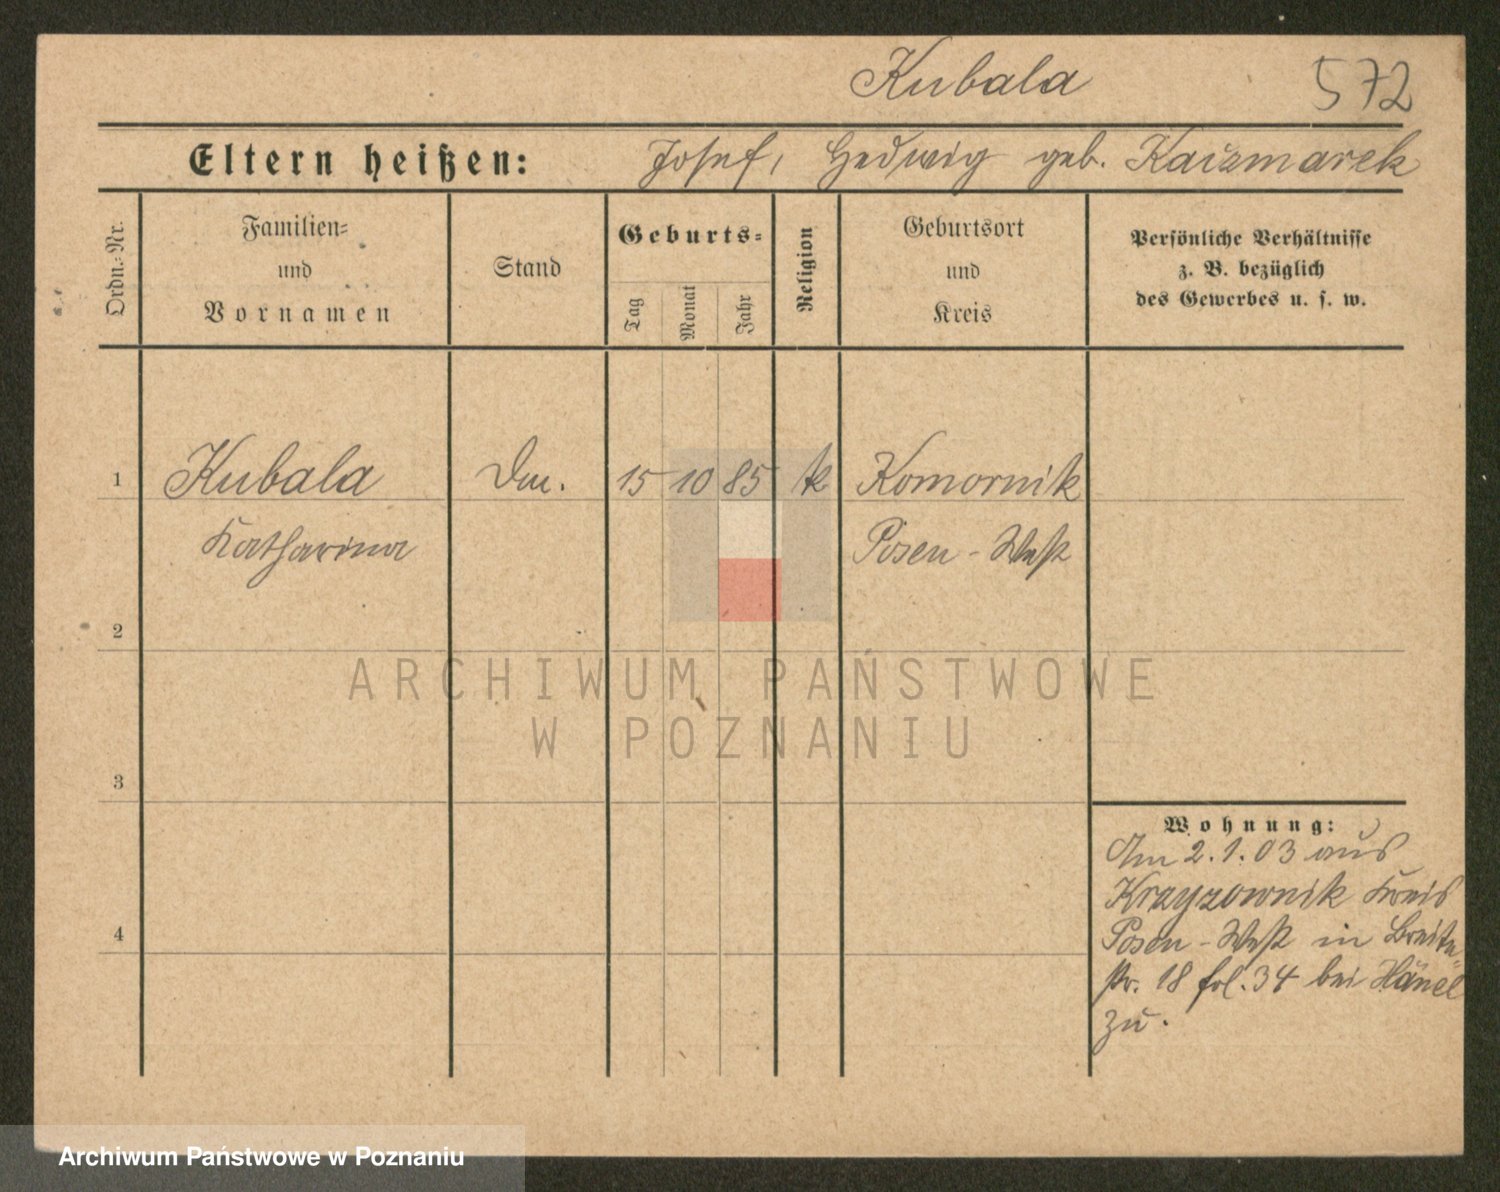 Kubala 572
Eltern heißen: Josef, Hedwig geb. Kaczmarek
Ordn.-Nr.
Familien-
und
Vornamen
Stand
Geburts-
Tag
Monat
Jahr
Religion
Geburtsort
und
Kreis
Persönliche Verhältnisse
z. B. bezüglich
des Gewerbes u. s. w.
1 Kubala 15 10 85 k Komornik
Katharina Posen - West
2
3
4
Wohnung:
Am 2.1.03 aus
Krzyzownik Kreis
Posen - West in Breite
str. 18 fol. 34 bei Hänel
zu.
ARCHIWUM PAŃSTWOWE
W POZNANIU
Archiwum Państwowe w Poznaniu